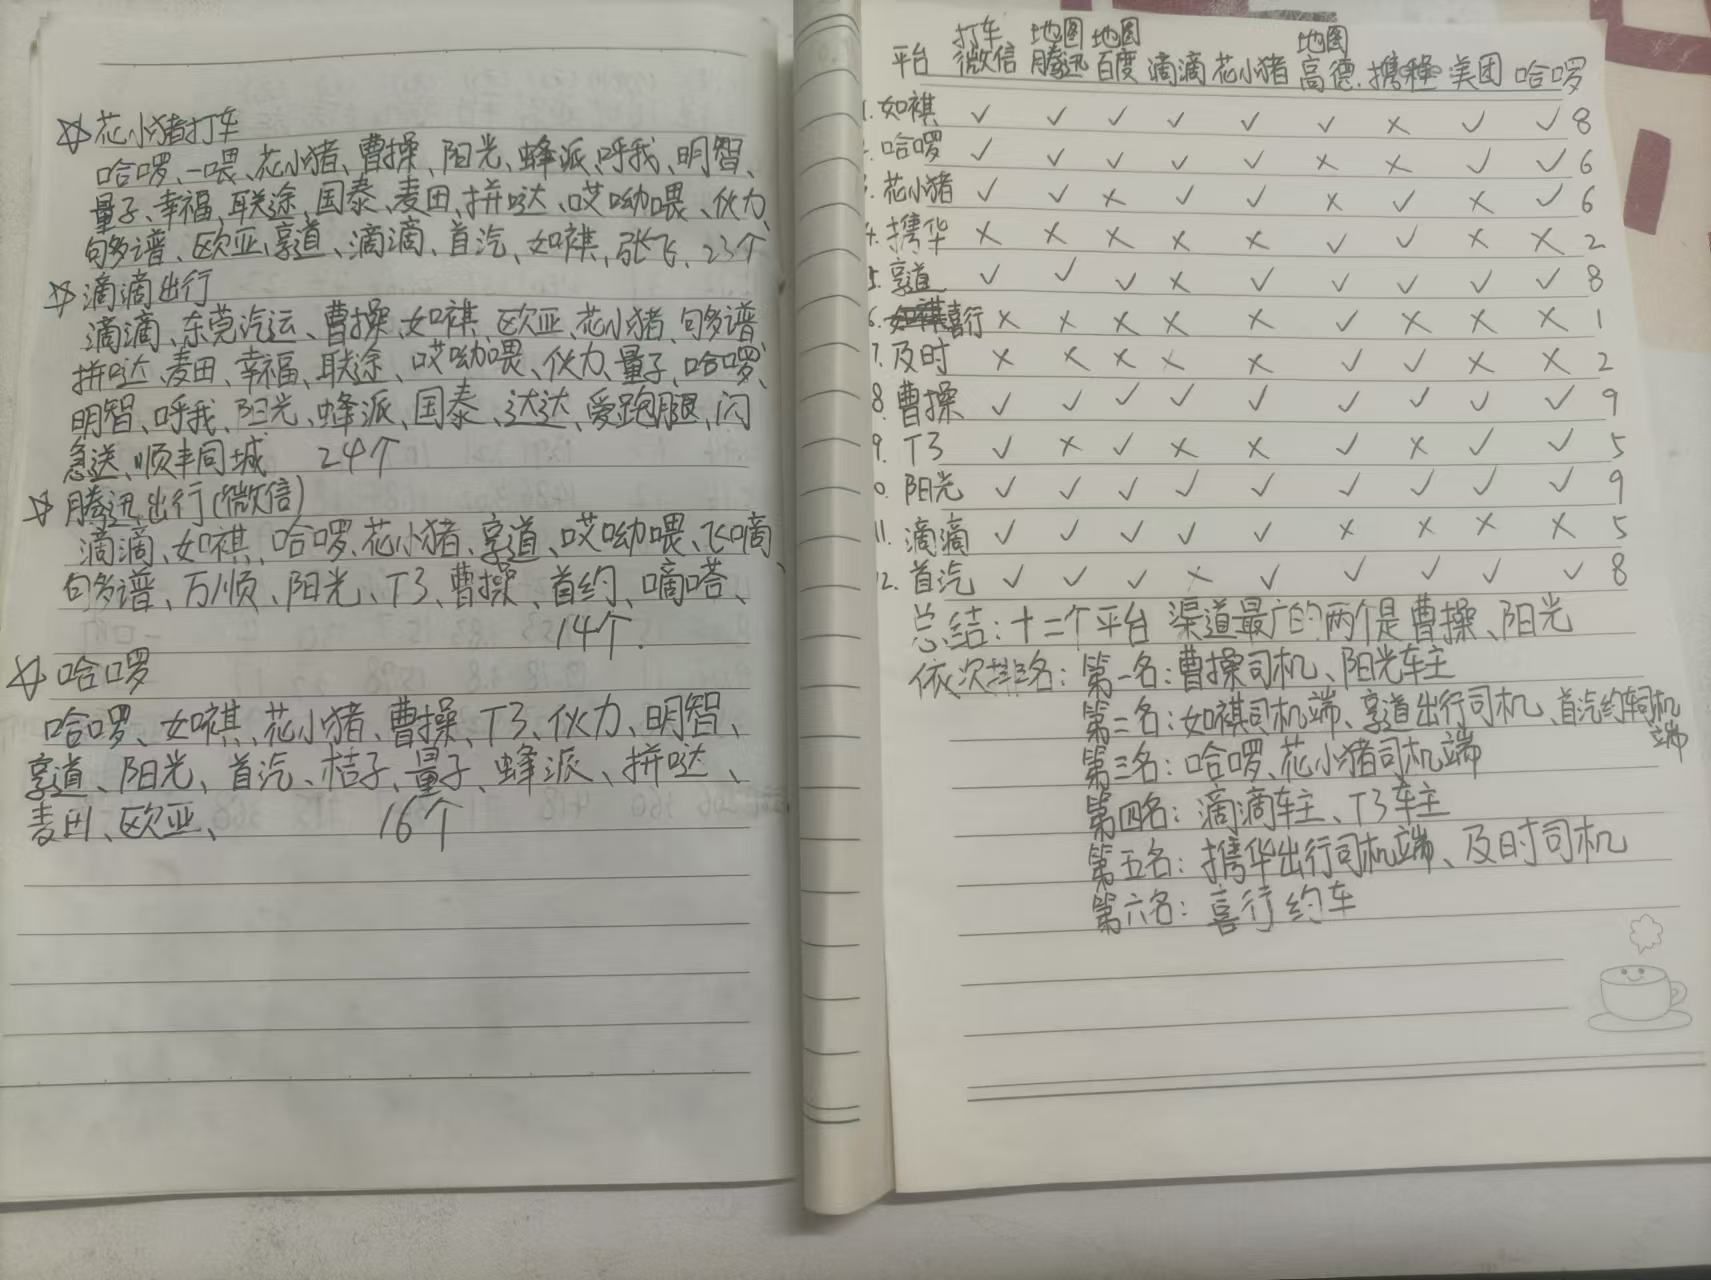 花小猪打车
哈啰、一喂、花小猪、曹操、阳光、蜂派、呼我、明智、
量子、幸福、联途、国泰、麦田、拼哒、哎呦喂、伙力、
句多谱、欧亚、享道、滴滴、首汽、如祺、张飞、23个
滴滴出行
滴滴、东莞汽运、曹操、如祺、欧亚、花小猪、句多谱、
拼哒、麦田、幸福、联途、哎呦喂、伙力、量子、哈啰、
明智、呼我、阳光、蜂派、国泰、达达、爱跑腿、闪
急送、顺丰同城 24个
腾迅出行(微信)
滴滴、如祺、哈啰、花小猪、享道、哎呦喂、飞嘀、
句多谱、万顺、阳光、T3、曹操、首约、嘀嗒、
14个.
哈啰
哈啰、如祺、花小猪、曹操、T3、伙力、明智、
享道、阳光、首汽、桔子、量子、蜂派、拼哒、
麦田、欧亚、 16个
打车 地图 地图 地图
平台 微信 腾迅 百度 滴滴 花小猪 高德 携程 美团 哈啰
1. 如祺 ✓ ✓ ✓ ✓ ✓ ✓ × ✓ ✓ 8
2. 哈啰 ✓ ✓ ✓ ✓ ✓ × × ✓ ✓ 6
3. 花小猪 ✓ ✓ × ✓ ✓ × ✓ × ✓ 6
4. 携华 × × × × × ✓ ✓ × × 2
5. 享道 ✓ ✓ ✓ × ✓ ✓ ✓ ✓ ✓ 8
6. 喜行 × × × × × ✓ × × × 1
7. 及时 × × × × × ✓ ✓ × × 2
8. 曹操 ✓ ✓ ✓ ✓ ✓ ✓ ✓ ✓ ✓ 9
9. T3 ✓ × ✓ × × ✓ × ✓ ✓ 5
10. 阳光 ✓ ✓ ✓ ✓ ✓ ✓ ✓ ✓ ✓ 9
11. 滴滴 ✓ ✓ ✓ ✓ ✓ × × × × 5
12. 首汽 ✓ ✓ ✓ × ✓ ✓ ✓ ✓ ✓ 8
总结：十二个平台 渠道最广的两个是曹操、阳光
依次排名：第一名：曹操司机、阳光车主
第二名：如祺司机端、享道出行司机、首汽约车司机
端
第三名：哈啰、花小猪司机端
第四名：滴滴车主、T3车主
第五名：携华出行司机端、及时司机
第六名：喜行约车